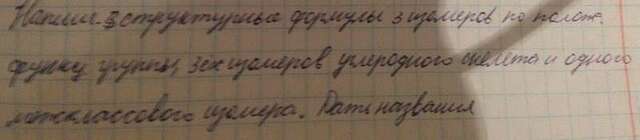 Напиши 3 структурные формулы 3 изомеров по полож.
функц группы, 3ёх изомеров углеродного скелета и одного
межклассового изомера. Дать названия